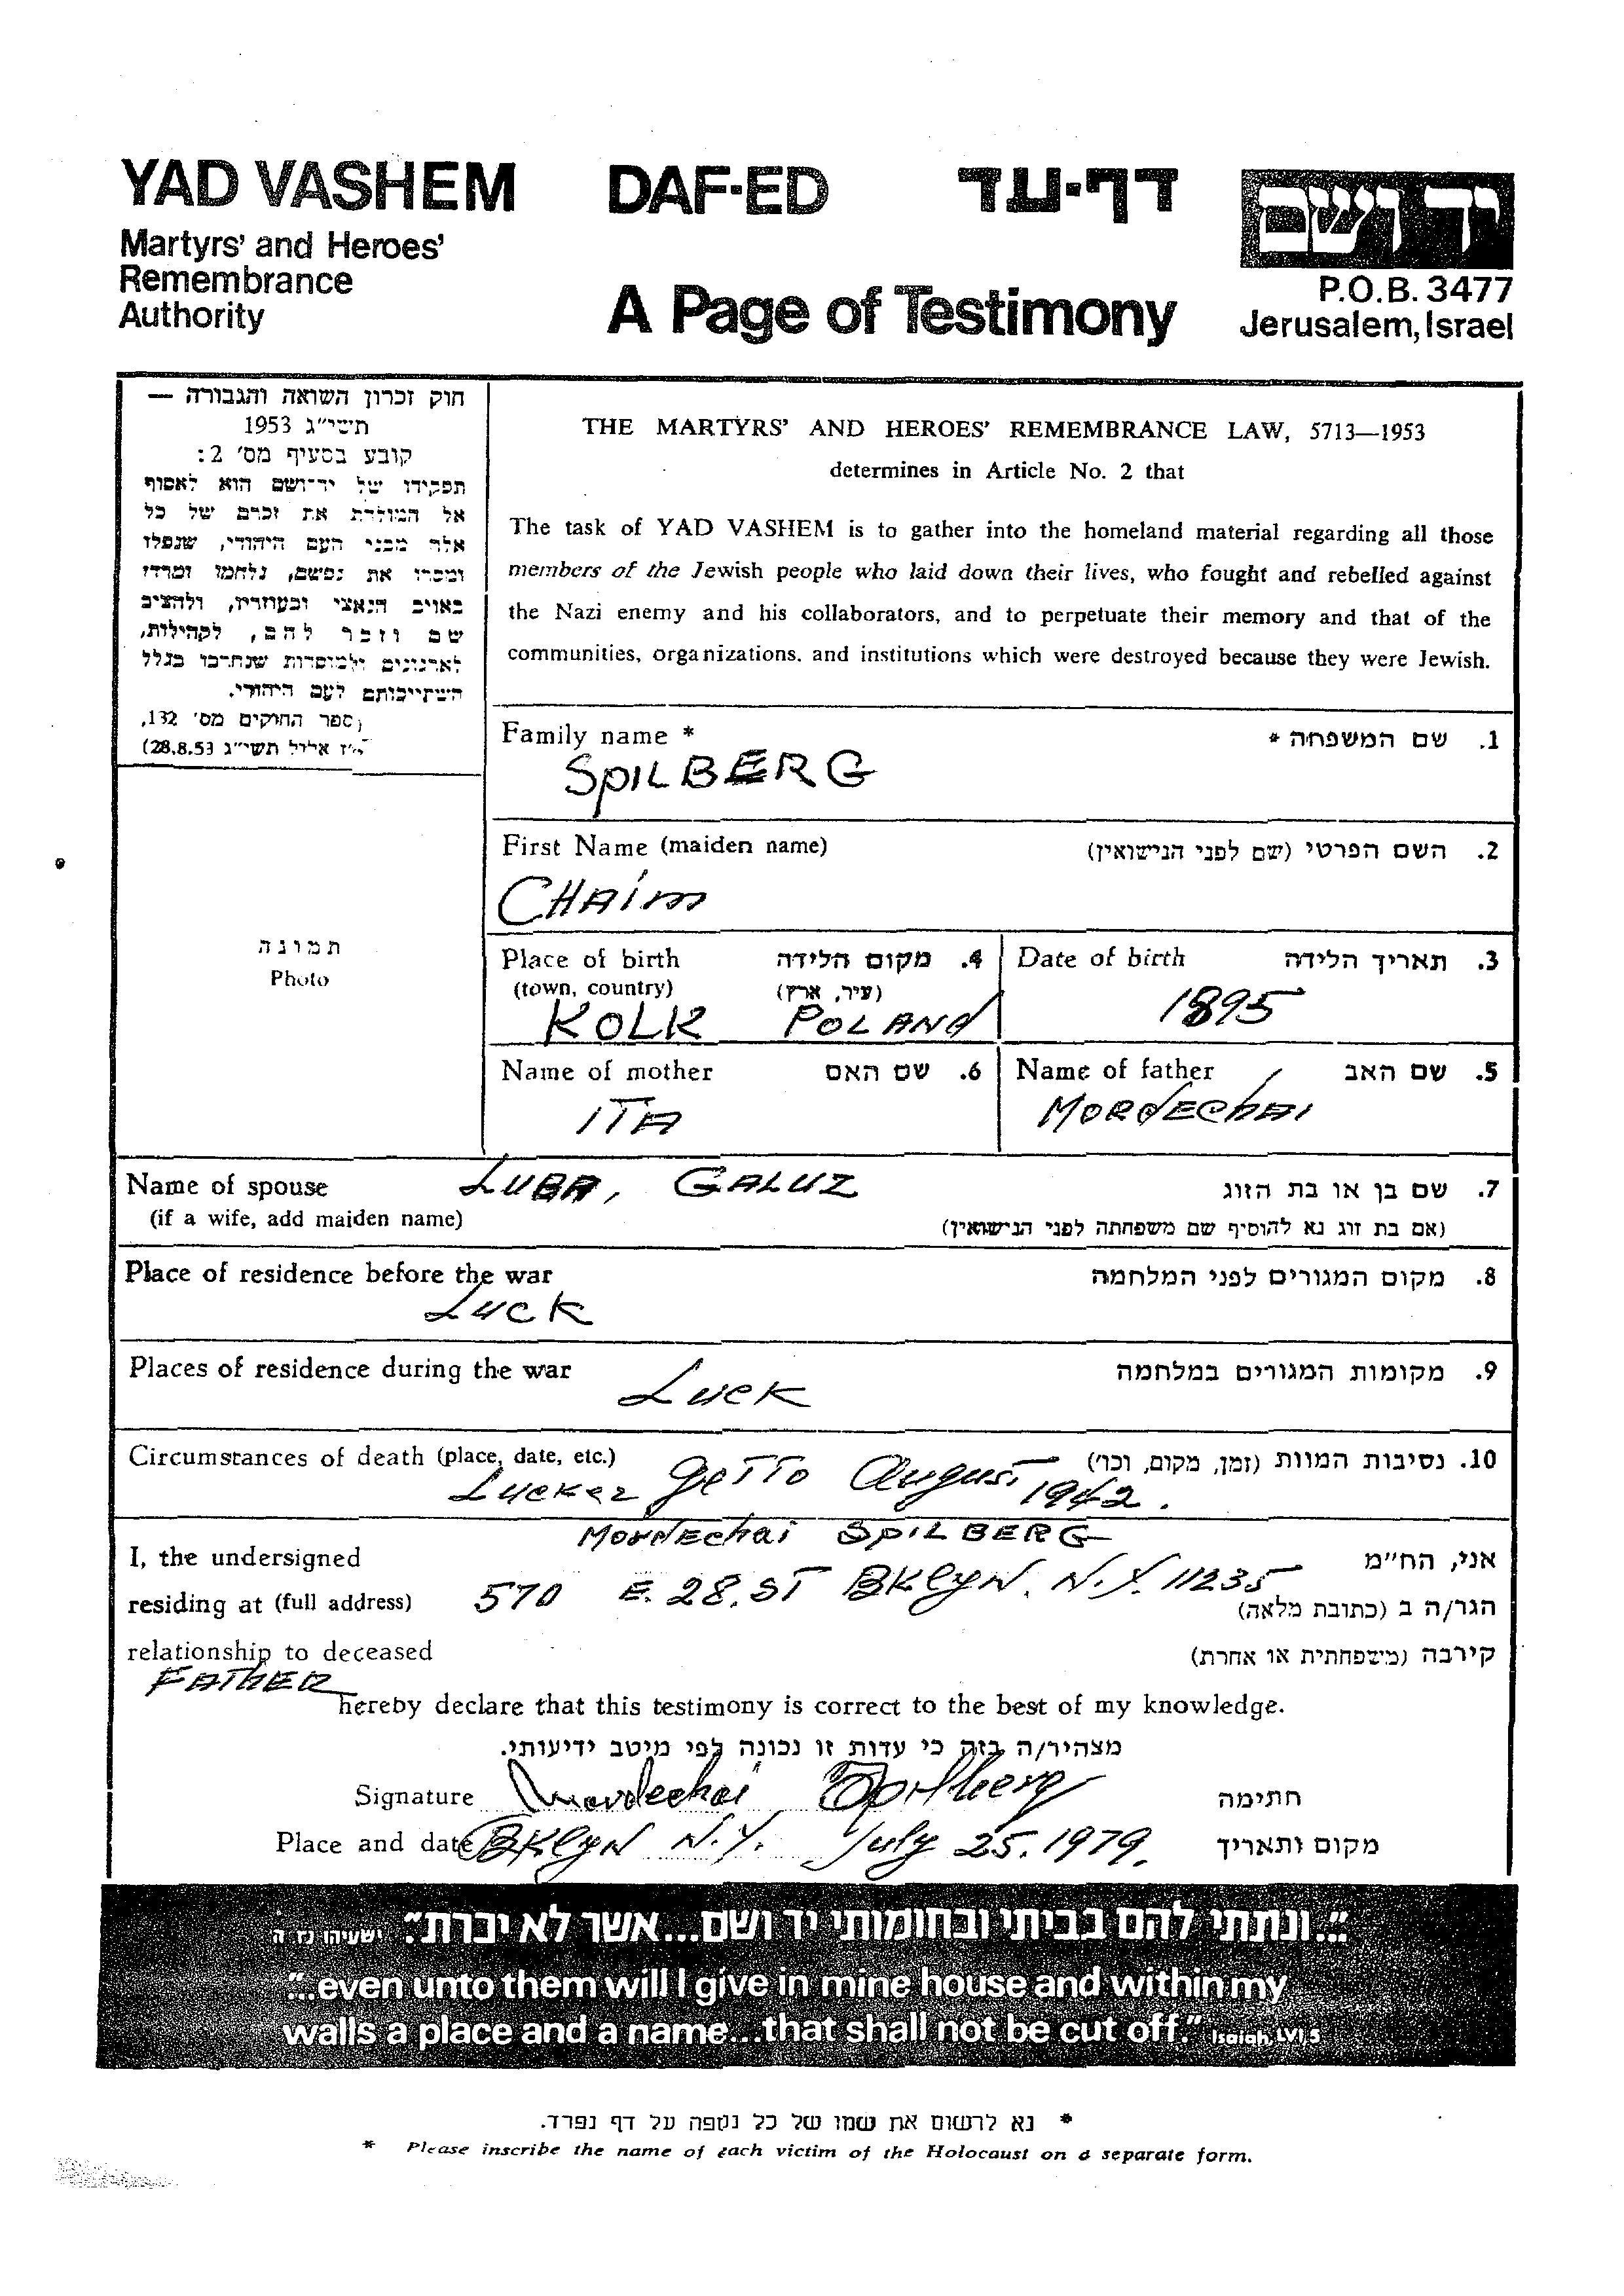 YAD VASHEM
Martyrs' and Heroes'
Remembrance
Authority
DAF-ED דף-עד
A Page of Testimony
יד ושם
P.O.B. 3477
Jerusalem, Israel
חוק זכרון השואה והגבורה —
תשי״ג 1953
קובע בסעיף מס' 2:
תפקידו של יד-ושם הוא לאסוף
אל המולדת את זכרם של כל
אלה מבני העם היהודי, שנפלו
ומסרו את נפשם, נלחמו ומרדו
באויב הנאצי ובעוזריו, ולהציב
שם וזכר להם, לקהילות,
לארגונים ולמוסדות שנחרבו בגלל
השתייכותם לעם היהודי.
(ספר החוקים מס' 132,
אלול תשי״ג 28.8.53)
תמונה
Photo
THE MARTYRS' AND HEROES' REMEMBRANCE LAW, 5713—1953
determines in Article No. 2 that
The task of YAD VASHEM is to gather into the homeland material regarding all those
members of the Jewish people who laid down their lives, who fought and rebelled against
the Nazi enemy and his collaborators, and to perpetuate their memory and that of the
communities, organizations, and institutions which were destroyed because they were Jewish.
Family name * 1. שם המשפחה *
SPILBERG
First Name (maiden name) 2. השם הפרטי (שם לפני הנישואין)
CHAIM
Place of birth 4. מקום הלידה
(town, country) (עיר, ארץ)
KOLK POLAND
Date of birth 3. תאריך הלידה
1895
Name of mother 6. שם האם
ITA
Name of father 5. שם האב
MORDECHAI
Name of spouse LUBA, GALUZ 7. שם בן או בת הזוג
(if a wife, add maiden name) (אם בת זוג נא להוסיף שם משפחתה לפני הנישואין)
Place of residence before the war 8. מקום המגורים לפני המלחמה
LUCK
Places of residence during the war 9. מקומות המגורים במלחמה
LUCK
Circumstances of death (place, date, etc.) 10. נסיבות המוות (זמן, מקום, וכו')
LUCKER GETTO August 1942.
MORDECHAI SPILBERG
I, the undersigned אני, הח״מ
residing at (full address) 570 E. 28. ST BKLYN. N.Y. 11235 הגר/ה ב (כתובת מלאה)
relationship to deceased קירבה (משפחתית או אחרת)
FATHER
hereby declare that this testimony is correct to the best of my knowledge.
מצהיר/ה בזה כי עדות זו נכונה לפי מיטב ידיעותי.
Signature Mordechai Spilberg חתימה
Place and date BKLYN N.Y. July 25. 1979. מקום ותאריך
"...ונתתי להם בביתי ובחומותי יד ושם...אשר לא יכרת". ישעיהו נו ה
"...even unto them will I give in mine house and within my
walls a place and a name...that shall not be cut off." Isaiah, LVI, 5
* נא לרשום את שמו של כל נספה על דף נפרד.
* Please inscribe the name of each victim of the Holocaust on a separate form.